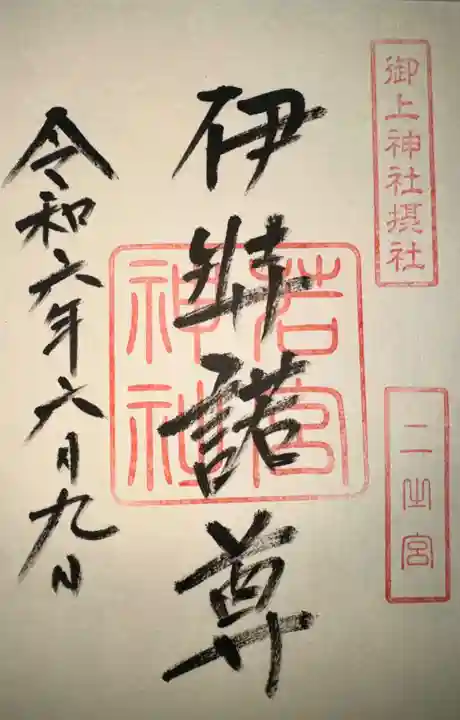 御上神社摂社
二之宮
伊弉諾尊
若宮
神社
令和六年六月九日